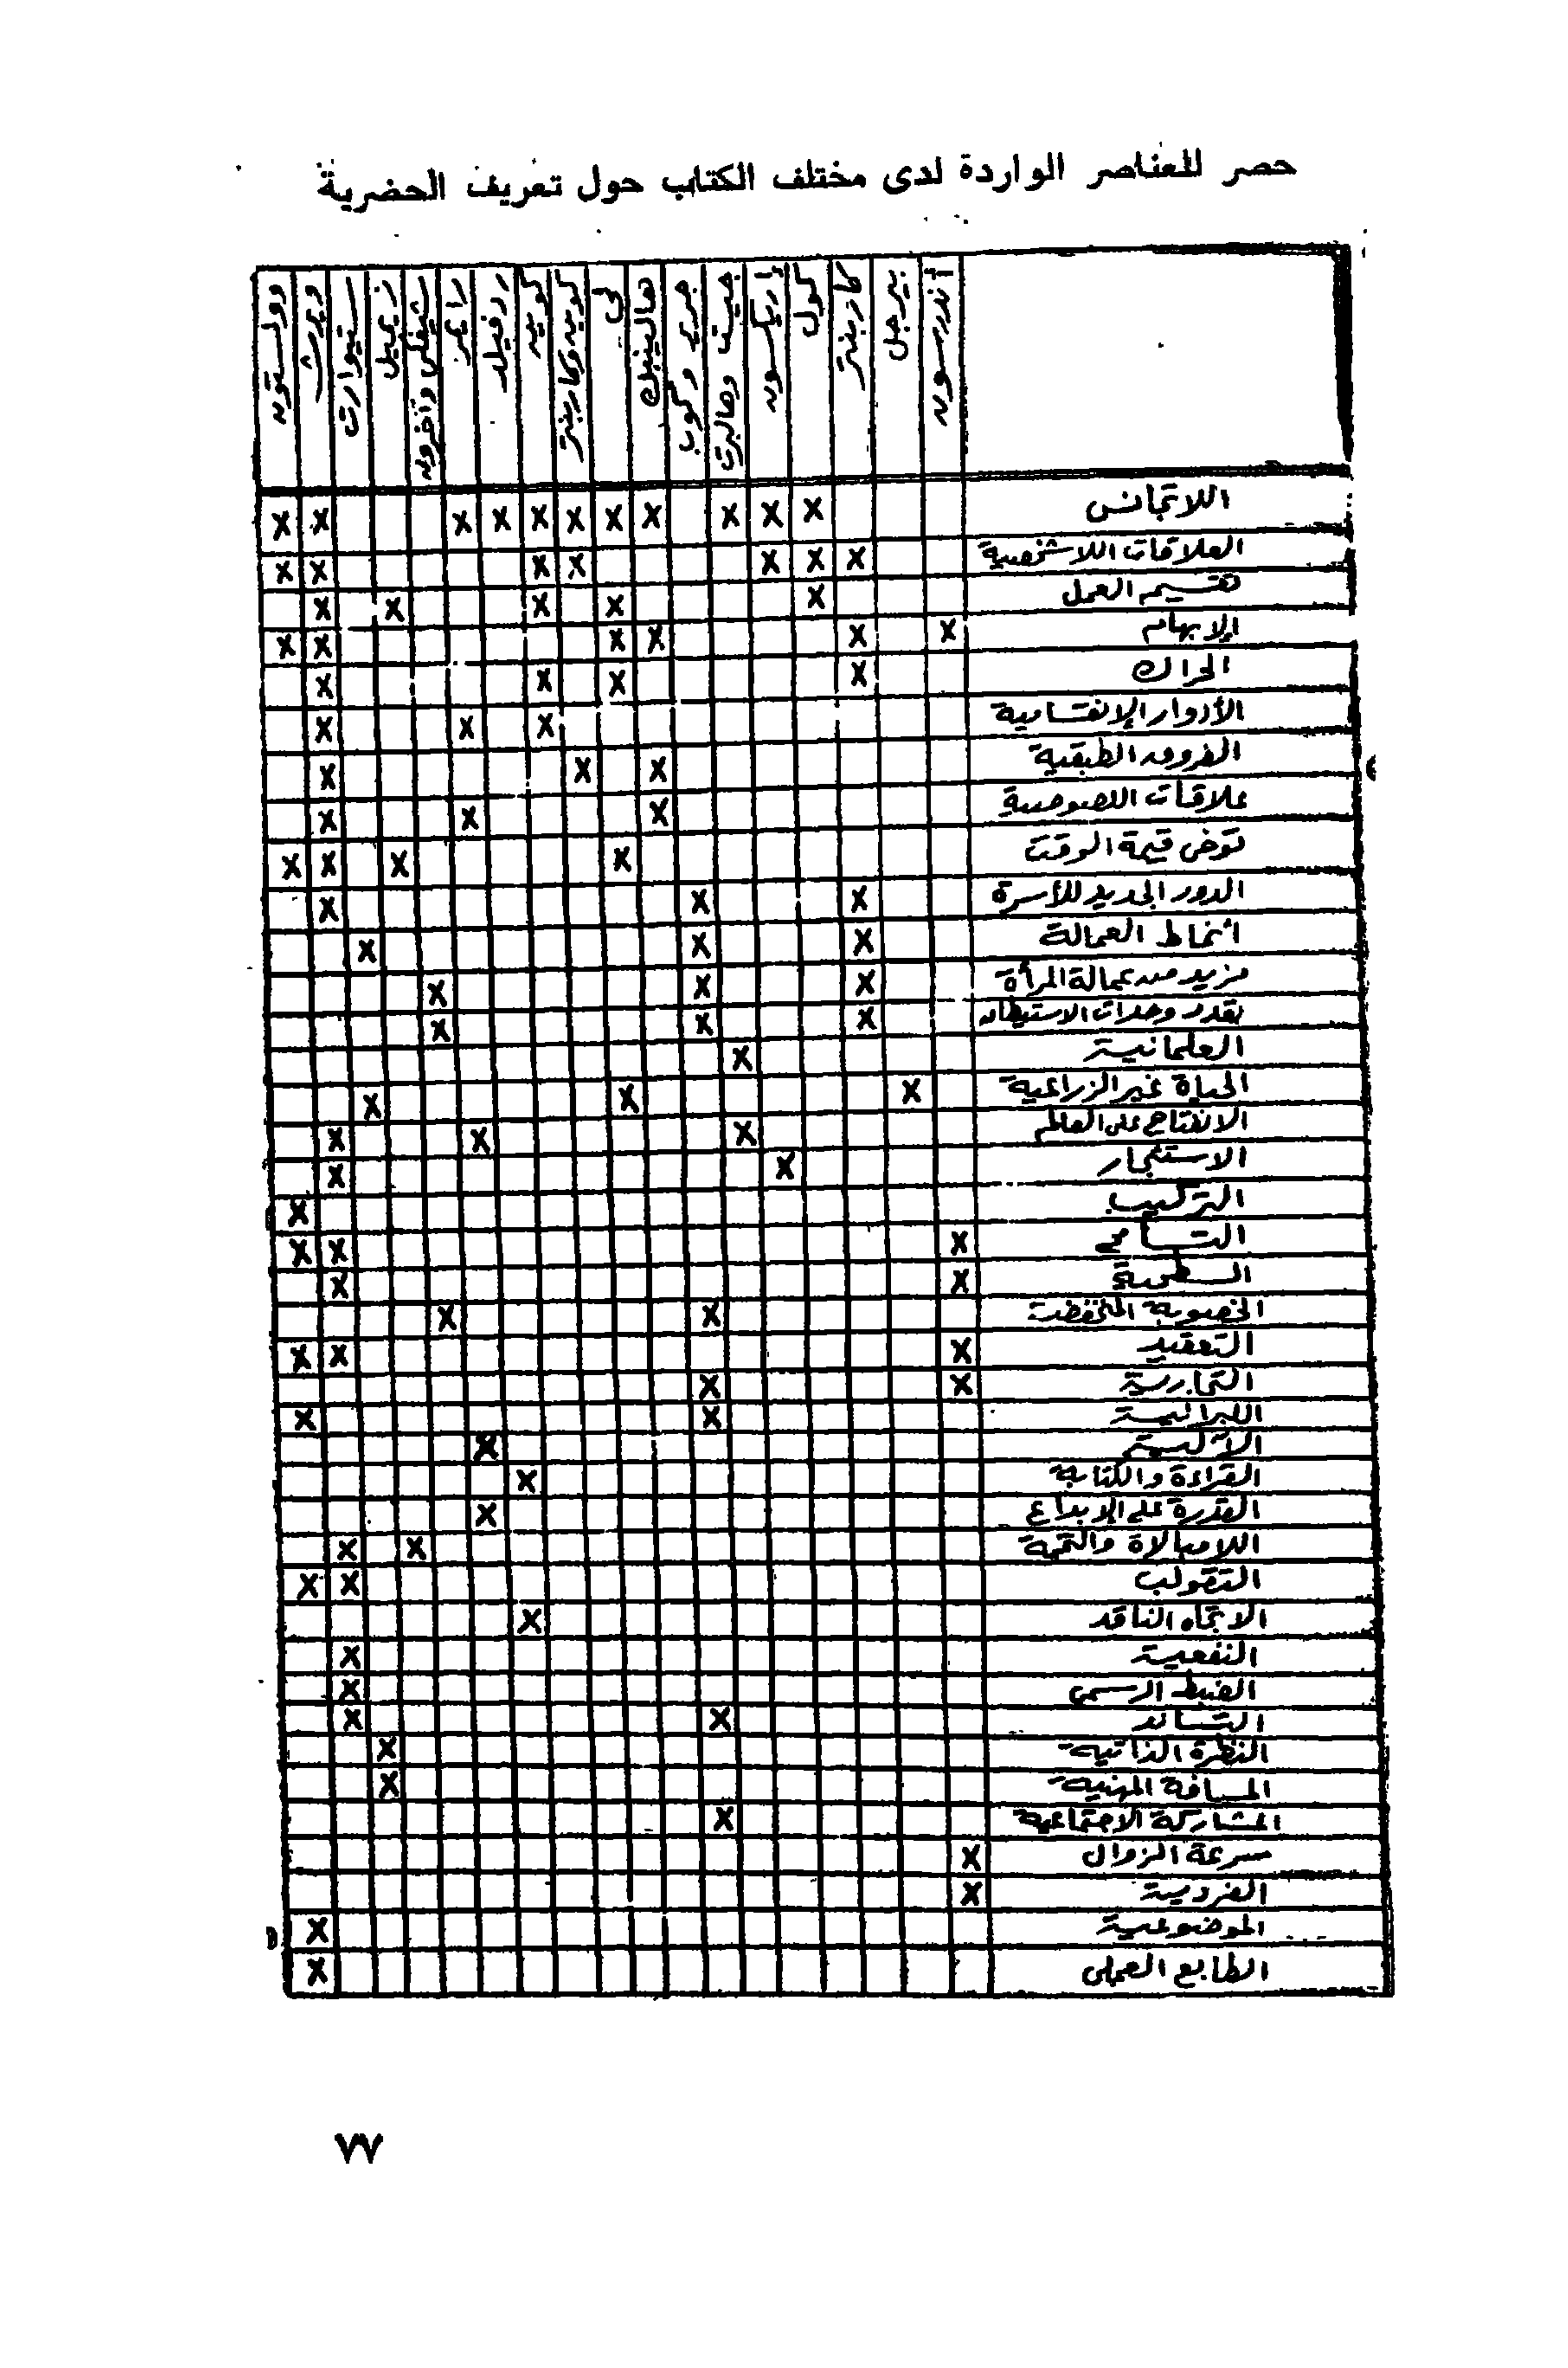 حصر للعناصر الواردة لدى مختلف الكتاب حول تعريف الحضرية
أندرسون بيرجل كاربنتر كول إريكسون جيست وهالبرت جرير وكوب هالينبك لي كوين وكاربنتر كوين ردفيلد رايمر شيفكي وآخرون زيميل ستيوارت ويرث وولستون
اللاتجانس X X X X X X X X X X X
العلاقات اللاشخصية X X X X X X X
تقسيم العمل X X X X X
الإبهام X X X X X X
الحراك X X X X
الأدوار الإنقسامية X X X
الفروق الطبقية X X X
علاقات اللصوصية X X X
توخى قيمة الوقت X X X X
الدور الجديد للأسرة X X X
أنماط العمالة X X X
مزيد من عمالة المرأة X X X
تعدد وحدات الاستيطان X X X
العلمانية X
الحياة غير الزراعية X X X
الانفتاح على العالم X X X
الاستئجار X X
التركيب X
التسامح X X X
السطحية X X
الخصوبة المنخفضة X X
التعقيد X X X
التجارية X X
اللبرالية X X
الآلية X
القراءة والكتابة X
القدرة على الإبداع X
اللامبالاة والتخمة X X
التقولب X X
الاتجاه الناقد X
النفعية X
الضبط الرسمى X
التساند X X
النظرة الذاتية X
المسافة المهنية X
المشاركة الاجتماعية X
سرعة الزوال X
الفردية X
الموضوعية X
الطابع العملى X
٧٧